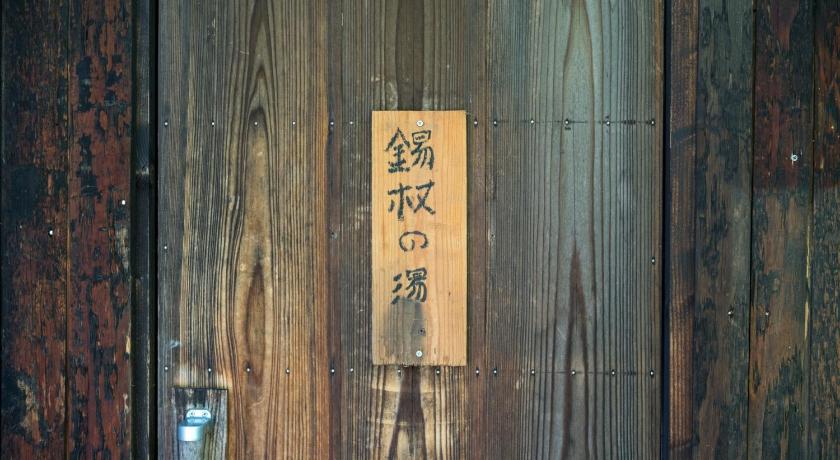 錫杖の湯